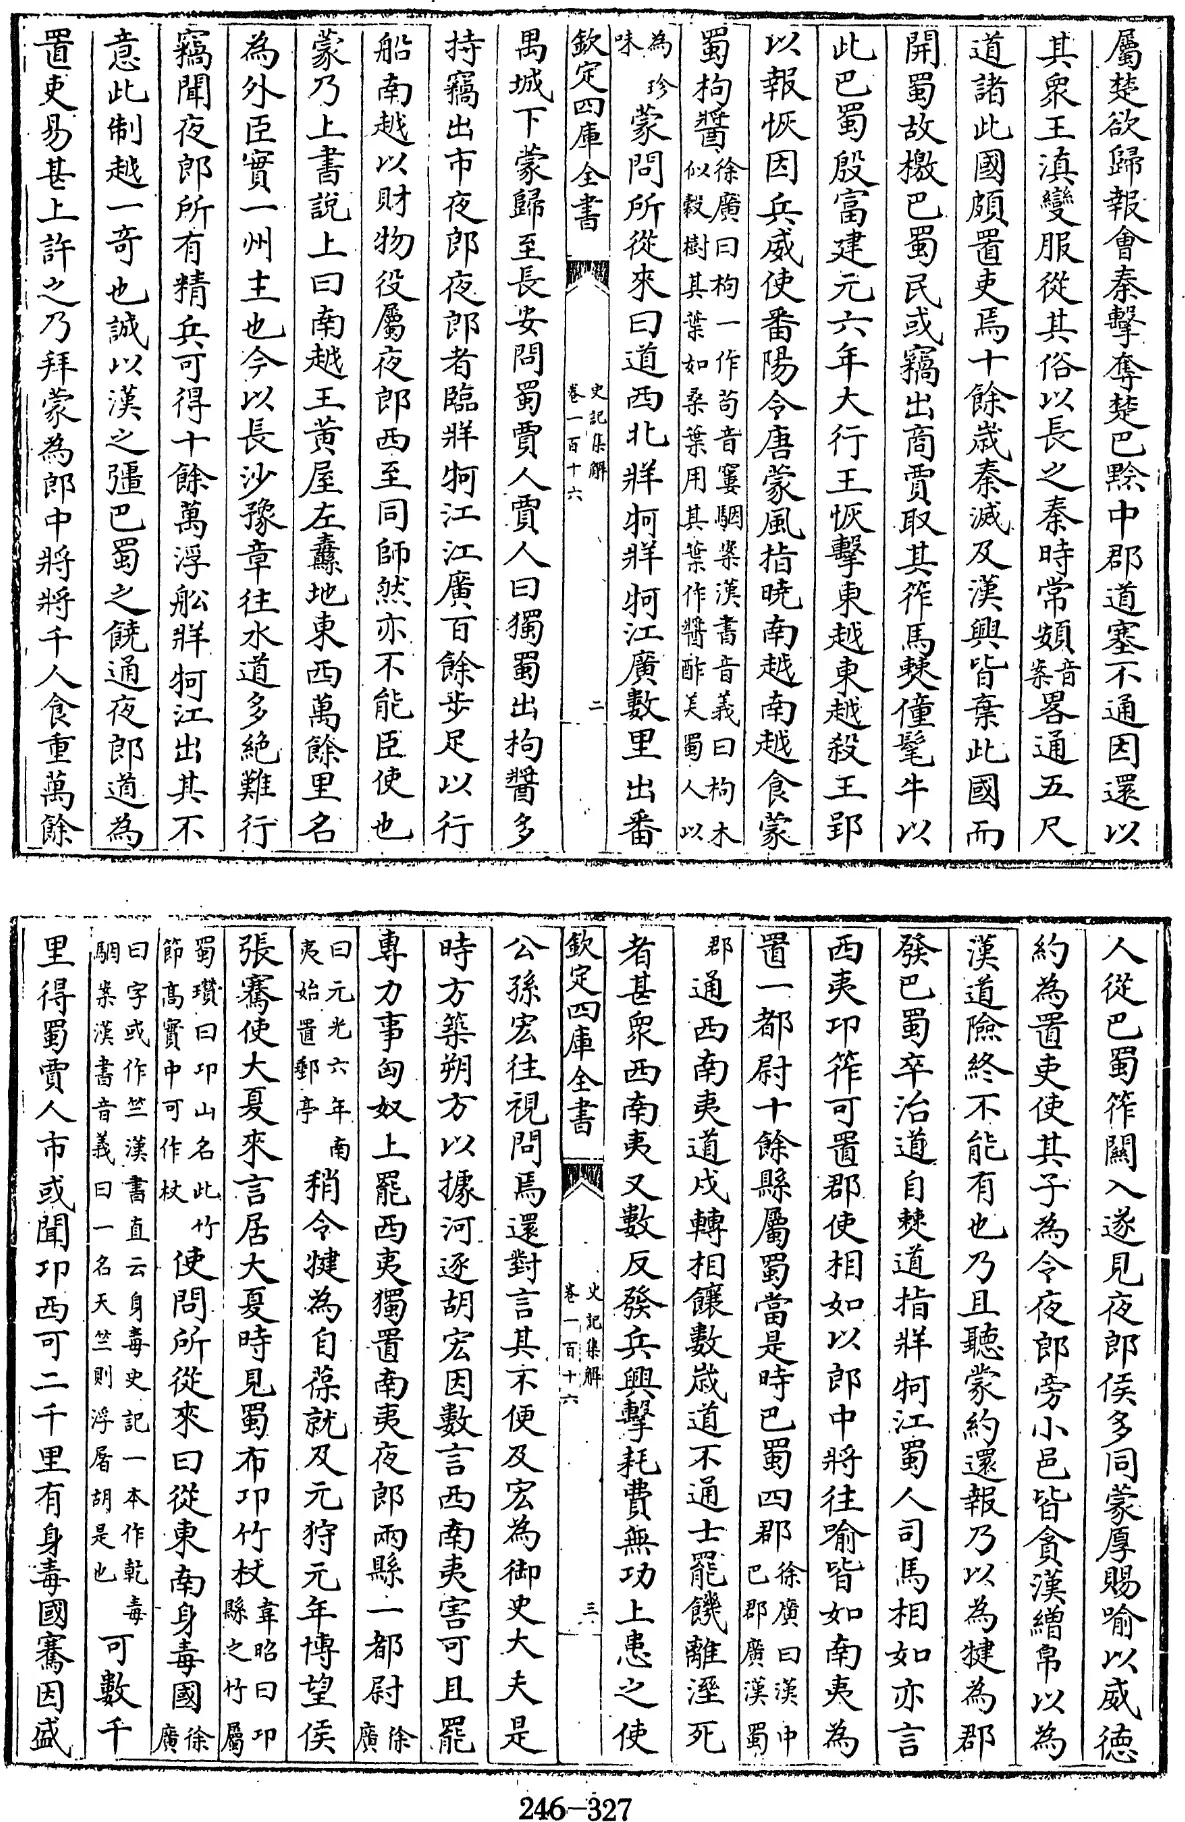 屬楚欲歸報會秦擊奪楚巴黔中郡道塞不通因還以
其衆王滇變服從其俗以長之秦時常頞音案畧通五尺
道諸此國頗置吏焉十餘嵗秦滅及漢興皆棄此國而
開蜀故檄巴蜀民或竊出商賈取其筰馬僰僮髦牛以
此巴蜀殷富建元六年大行王恢擊東越東越殺王郢
以報恢因兵威使番陽令唐蒙風指曉南越南越食蒙
蜀枸醬徐廣曰枸一作苟音窶駰案漢書音義曰枸木
似榖樹其葉如桑葉用其葉作醬酢美蜀人以
為珍
味蒙問所從來曰道西北牂牁牂牁江廣數里出番
欽定四庫全書
史記集解
卷一百十六
二
禺城下蒙歸至長安問蜀賈人賈人曰獨蜀出枸醬多
持竊出市夜郎夜郎者臨牂牁江江廣百餘步足以行
船南越以財物役屬夜郎西至同師然亦不能臣使也
蒙乃上書說上曰南越王黃屋左纛地東西萬餘里名
為外臣實一州主也今以長沙豫章往水道多絶難行
竊聞夜郎所有精兵可得十餘萬浮舩牂牁江出其不
意此制越一奇也誠以漢之彊巴蜀之饒通夜郎道為
置吏易甚上許之乃拜蒙為郎中將將千人食重萬餘
人從巴蜀筰關入遂見夜郎侯多同蒙厚賜喻以威徳
約為置吏使其子為令夜郎旁小邑皆貪漢繒帛以為
漢道險終不能有也乃且聽蒙約還報乃以為犍為郡
發巴蜀卒治道自僰道指牂牁江蜀人司馬相如亦言
西夷卭筰可置郡使相如以郎中將往喻皆如南夷為
置一都尉十餘縣屬蜀當是時巴蜀四郡徐廣曰漢中
巴郡廣漢蜀
郡通西南夷道戍轉相饟數嵗道不通士罷饑離溼死
者甚衆西南夷又數反發兵興擊耗費無功上患之使
欽定四庫全書
史記集解
卷一百十六
三
公孫宏往視問焉還對言其不便及宏為御史大夫是
時方築朔方以據河逐胡宏因數言西南夷害可且罷
專力事匈奴上罷西夷獨置南夷夜郎兩縣一都尉徐
廣
曰元光六年南
夷始置郵亭稍令犍為自葆就及元狩元年博望侯
張騫使大夏來言居大夏時見蜀布卭竹杖韋昭曰卭
縣之竹屬
蜀瓚曰卭山名此竹
節高實中可作杖使問所從來曰從東南身毒國徐
廣
曰字或作竺漢書直云身毒史記一本作乾毒
駰案漢書音義曰一名天竺則浮屠胡是也可數千
里得蜀賈人市或聞卭西可二千里有身毒國騫因盛
246-327